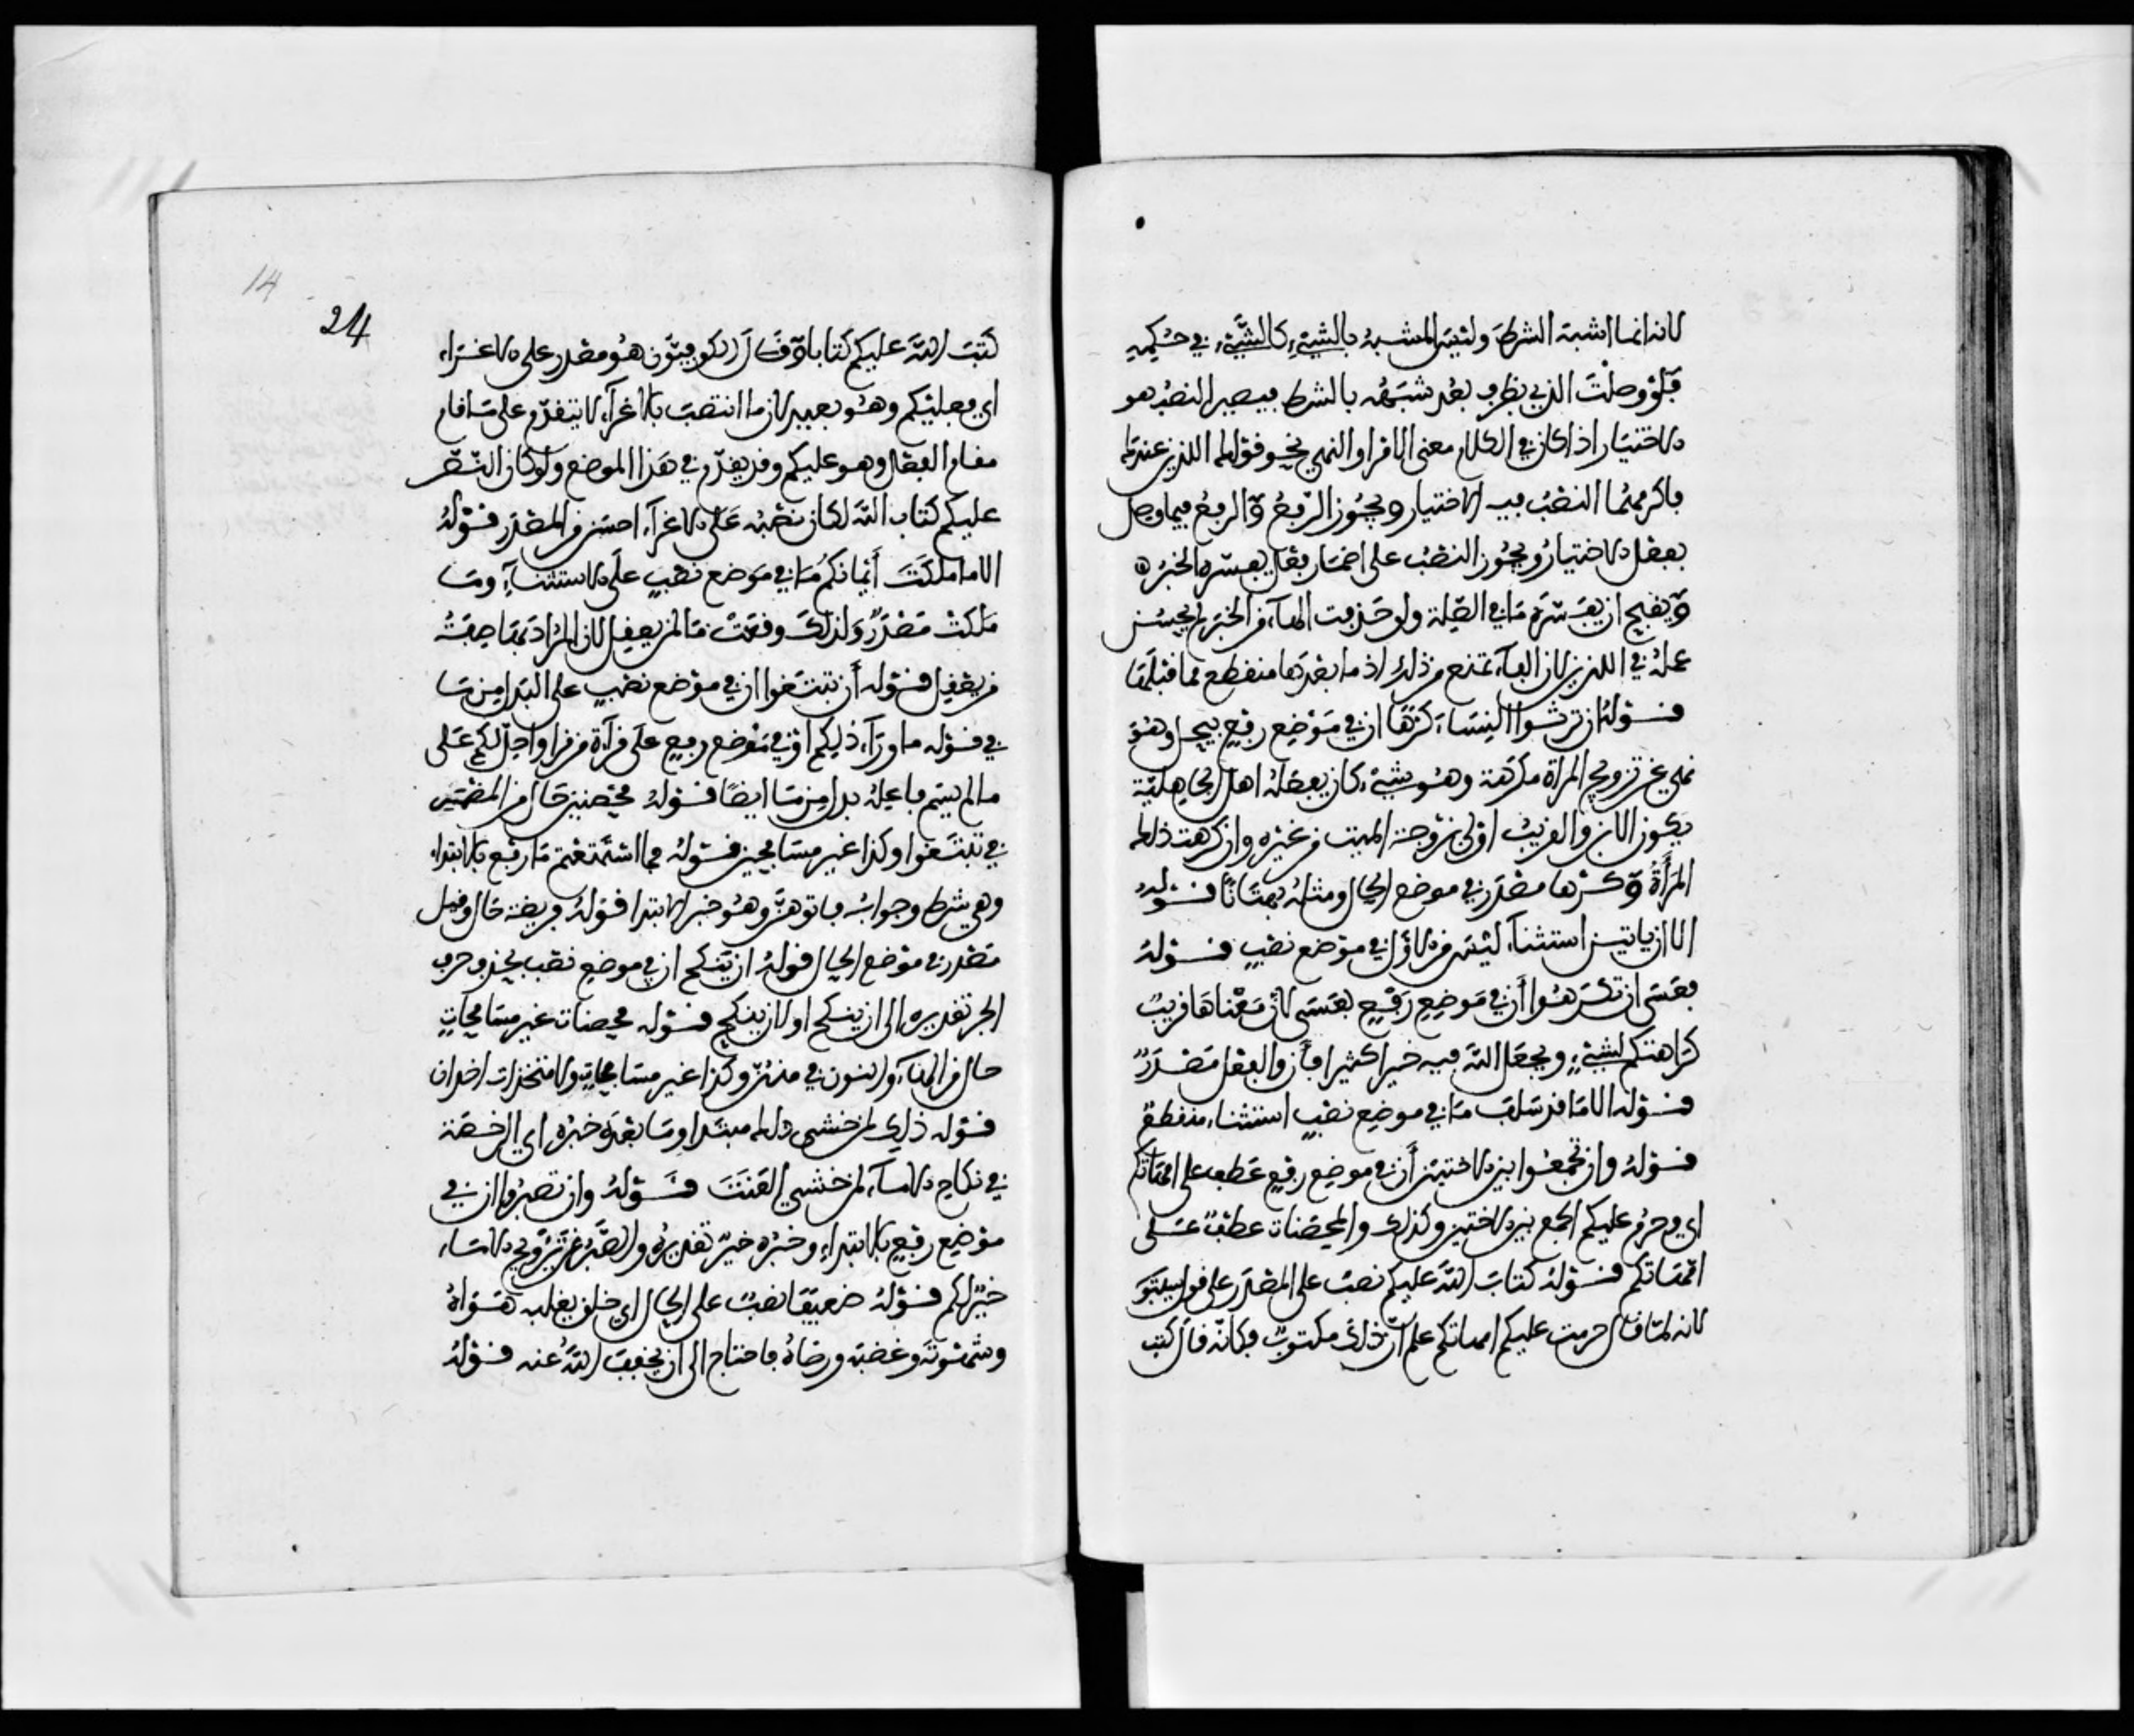 لانه انما اشبه الشرط وليس المشبه بالشيء كالشيء في حكمه
فلو وصلت الذي بظرف بعد شبهه بالشرط فيصير النصب هو
الاختيار اذا كان في الكلام معنى الامر او النهي نحو قولك اللذين عندك
فاكرمهما النصب فيه الاختيار ويجوز الرفع والرفع فيما وصل
بفعل الاختيار ويجوز النصب على اضمار فعل يفسره الخبر
ويقبح ان يفسره ما في الصلة ولو حذفت الهاء من الخبر لم يحسن
عمله في اللذين لان الفاء تمنع من ذلك اذ ما بعدها منقطع مما قبلها
قوله ان ترثوا النساء كرها ان في موضع رفع بيحل وهو
نهي عن تزويج المراة مكرهة وهو شيء كان يفعله اهل الجاهلية
يكون الابن والقريب اولى بزوجة الميت من غيره وان كرهت ذلك
المرأة وكرها مصدر في موضع الحال ومثله بهتانا قوله
الا ان ياتين استثناء ليس من الاول في موضع نصب قوله
فعسى ان تكرهوا أن في موضع رفع بعسى لان معناها قريب
كراهتكم لشيء ويجعل الله فيه خيرا كثيرا فأن والفعل مصدر
قوله الا ما قد سلف ما في موضع نصب استثناء منقطع
قوله وان تجمعوا بين الاختين أن في موضع رفع عطف على امهاتكم
اي وحرم عليكم الجمع بين الاختين وكذلك والمحصنات عطف على
امهاتكم قوله كتاب الله عليكم نصب على المصدر على قول سيبويه
لانه لما قال حرمت عليكم امهاتكم علم ان ذلك مكتوب فكانه قال كتب
14
24
كتب الله عليكم كتابا وقال الكوفيون هو مقدر على الاغراء
اي فعليكم وهو بعيد لان ما انتصب بالاغراء لا يتقدم على ما قام
مقام الفعل وهو عليكم وقد تقدم في هذا الموضع ولو كان النص
عليكم كتاب الله لكان نصبه على الاغراء احسن من المصدر قوله
الا ما ملكت أيمانكم ما في موضع نصب على الاستثناء وما
ملكت مصدر ولذلك وقعت ما لمن يعقل لان المراد بها صفة
من يعقل قوله أن تبتغوا ان في موضع نصب على البدل من ما
في قوله ما وراء ذلكم او في موضع رفع على قراءة من قرا واحل لكم على
ما لم يسم فاعله بدل من ما ايضا قوله محصنين حال من المضمر
في تبتغوا وكذا غير مسافحين قوله فما استمتعتم ما رفع بالابتداء
وهي شرط وجوابه فاتوهن وهو خبر الابتدا قوله فريضة حال وقيل
مصدر في موضع الحال قوله ان ينكح ان في موضع نصب بحذف حرف
الجر تقديره الى ان ينكح او لان ينكح قوله محصنات غير مسافحات
حال من الهاء والنون في منهن وكذا غير مسافحات ولا متخذات اخدان
قوله ذلك لمن خشي ذلك مبتدا وما بعده خبره اي الرخصة
في نكاح الاماء لمن خشي العنت قوله وان تصبروا ان في
موضع رفع بالابتداء وخبره خير تقديره والصبر عن تزويج الاماء
خير لكم قوله ضعيفا نصب على الحال اي خلق يغلبه هواه
وشهوته وغضبه ورضاه فاحتاج الى ان يخفف الله عنه قوله